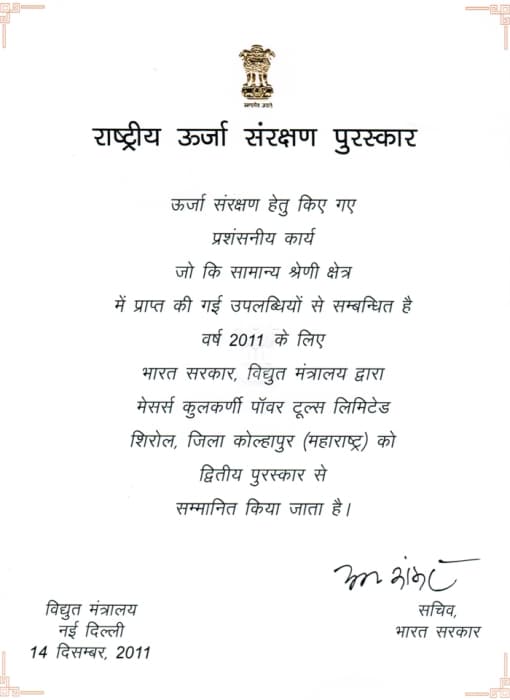 सत्यमेव जयते
राष्ट्रीय ऊर्जा संरक्षण पुरस्कार
ऊर्जा संरक्षण हेतु किए गए
प्रशंसनीय कार्य
जो कि सामान्य श्रेणी क्षेत्र
में प्राप्त की गई उपलब्धियों से सम्बन्धित है
वर्ष 2011 के लिए
भारत सरकार, विद्युत मंत्रालय द्वारा
मेसर्स कुलकर्णी पॉवर टूल्स लिमिटेड
शिरोल, जिला कोल्हापुर (महाराष्ट्र) को
द्वितीय पुरस्कार से
सम्मानित किया जाता है।
विद्युत मंत्रालय
नई दिल्ली
14 दिसम्बर, 2011
सचिव,
भारत सरकार